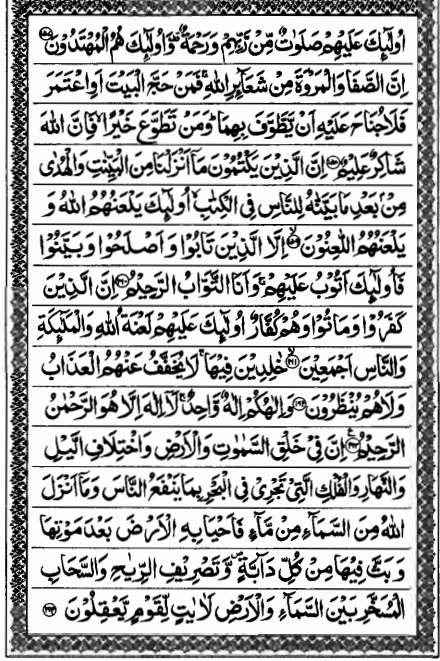 اُولٰٓئِكَ عَلَيۡهِمۡ صَلَوٰتٌ مِّنۡ رَّبِّهِمۡ وَرَحۡمَةٌ ۟ وَاُولٰٓئِكَ هُمُ الۡمُهۡتَدُوۡنَ ﴿۱۵۷﴾
اِنَّ الصَّفَا وَالۡمَرۡوَةَ مِنۡ شَعَآئِرِ اللّٰهِ ۚ فَمَنۡ حَجَّ الۡبَيۡتَ اَوِ اعۡتَمَرَ
فَلَا جُنَاحَ عَلَيۡهِ اَنۡ يَّطَّوَّفَ بِهِمَا ؕ وَمَنۡ تَطَوَّعَ خَيۡرًا ۙ فَاِنَّ اللّٰهَ
شَاكِرٌ عَلِيۡمٌ ﴿۱۵۸﴾ اِنَّ الَّذِيۡنَ يَكۡتُمُوۡنَ مَآ اَنۡزَلۡنَا مِنَ الۡبَيِّنٰتِ وَالۡهُدٰى
مِنۡۢ بَعۡدِ مَا بَيَّنّٰهُ لِلنَّاسِ فِى الۡكِتٰبِ ۙ اُولٰٓئِكَ يَلۡعَنُهُمُ اللّٰهُ وَ
يَلۡعَنُهُمُ اللّٰعِنُوۡنَ ۙ﴿۱۵۹﴾ اِلَّا الَّذِيۡنَ تَابُوۡا وَاَصۡلَحُوۡا وَبَيَّنُوۡا
فَاُولٰٓئِكَ اَتُوۡبُ عَلَيۡهِمۡ ۚ وَاَنَا التَّوَّابُ الرَّحِيۡمُ ﴿۱۶۰﴾ اِنَّ الَّذِيۡنَ
كَفَرُوۡا وَمَاتُوۡا وَهُمۡ كُفَّارٌ اُولٰٓئِكَ عَلَيۡهِمۡ لَعۡنَةُ اللّٰهِ وَالۡمَلٰٓئِكَةِ
وَالنَّاسِ اَجۡمَعِيۡنَ ۙ﴿۱۶۱﴾ خٰلِدِيۡنَ فِيۡهَا ۚ لَا يُخَفَّفُ عَنۡهُمُ الۡعَذَابُ
وَلَا هُمۡ يُنۡظَرُوۡنَ ﴿۱۶۲﴾ وَاِلٰهُكُمۡ اِلٰهٌ وَّاحِدٌ ۚ لَآ اِلٰهَ اِلَّا هُوَ الرَّحۡمٰنُ
الرَّحِيۡمُ ﴿۱۶۳﴾ اِنَّ فِىۡ خَلۡقِ السَّمٰوٰتِ وَالۡاَرۡضِ وَاخۡتِلَافِ الَّيۡلِ
وَالنَّهَارِ وَالۡفُلۡكِ الَّتِىۡ تَجۡرِىۡ فِى الۡبَحۡرِ بِمَا يَنۡفَعُ النَّاسَ وَمَآ اَنۡزَلَ
اللّٰهُ مِنَ السَّمَآءِ مِنۡ مَّآءٍ فَاَحۡيَا بِهِ الۡاَرۡضَ بَعۡدَ مَوۡتِهَا
وَبَثَّ فِيۡهَا مِنۡ كُلِّ دَآبَّةٍ ۪ وَّتَصۡرِيۡفِ الرِّيٰحِ وَالسَّحَابِ
الۡمُسَخَّرِ بَيۡنَ السَّمَآءِ وَالۡاَرۡضِ لَاٰيٰتٍ لِّقَوۡمٍ يَّعۡقِلُوۡنَ ﴿۱۶۴﴾